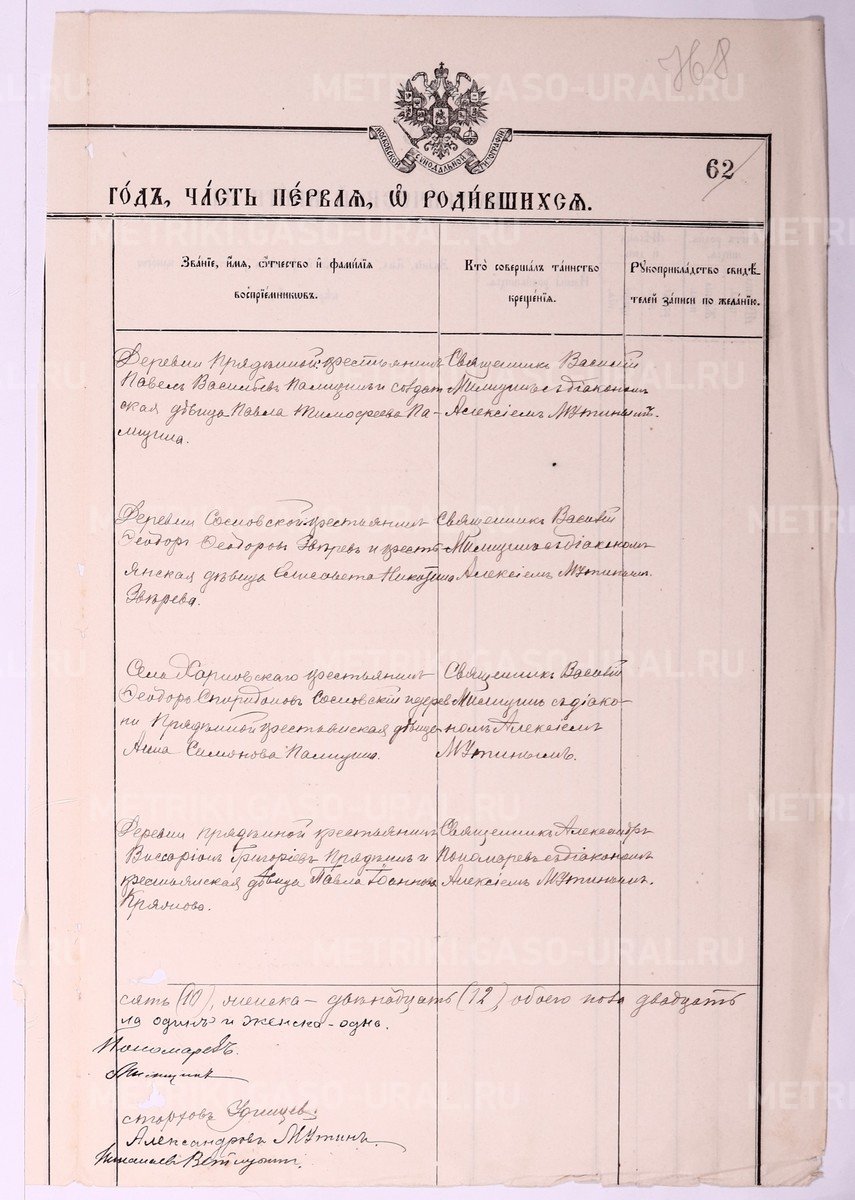 768
МОСКОВСКОЙ СѴНОДАЛЬНОЙ ТИПОГРАФІИ
62
ГОДЪ, ЧАСТЬ ПЕРВАЯ, Ѡ РОДИВШИХСЯ.
Званіе, имя, отчество и фамилія
воспріемниковъ.
Кто совершалъ таинство
крещенія.
Рукоприкладство свидѣ-
телей записи по желанію.
Деревни Прядѣиной крестьянинъ
Павелъ Васильевъ Памицынъ и солдат
ская дѣвица Павла Тимофеева Па-
Священникъ Василій
съ діакономъ
Алексіемъ Мутинымъ.
Деревни Сосновской крестьянинъ
Ѳеодоръ Ѳеодоровъ Звѣревъ и кресть
янская дѣвица Елисавета
Звѣрева.
Священникъ Василій
съ діакономъ
Алексіемъ Мутинымъ.
Села крестьянинъ
Ѳеодоръ Спиридоновъ Сосновскій и дерев
ни Прядѣиной крестьянская дѣвица
Анна Симонова
Священникъ Василій
съ діако-
номъ Алексіемъ
Мутинымъ.
Деревни Прядѣиной крестьянинъ
Виссаріонъ Григоріевъ Прядѣинъ и
крестьянская дѣвица Павла Іоаннова
Священникъ Александръ
Пономаревъ съ діакономъ
Алексіемъ Мутинымъ.
сять (10), женска – двѣнадцать (12), обоего пола двадцать
на одинъ и женска - одна.
Пономаревъ.
Александровъ Мутинъ.
METRIKI.GASO-URAL.RU